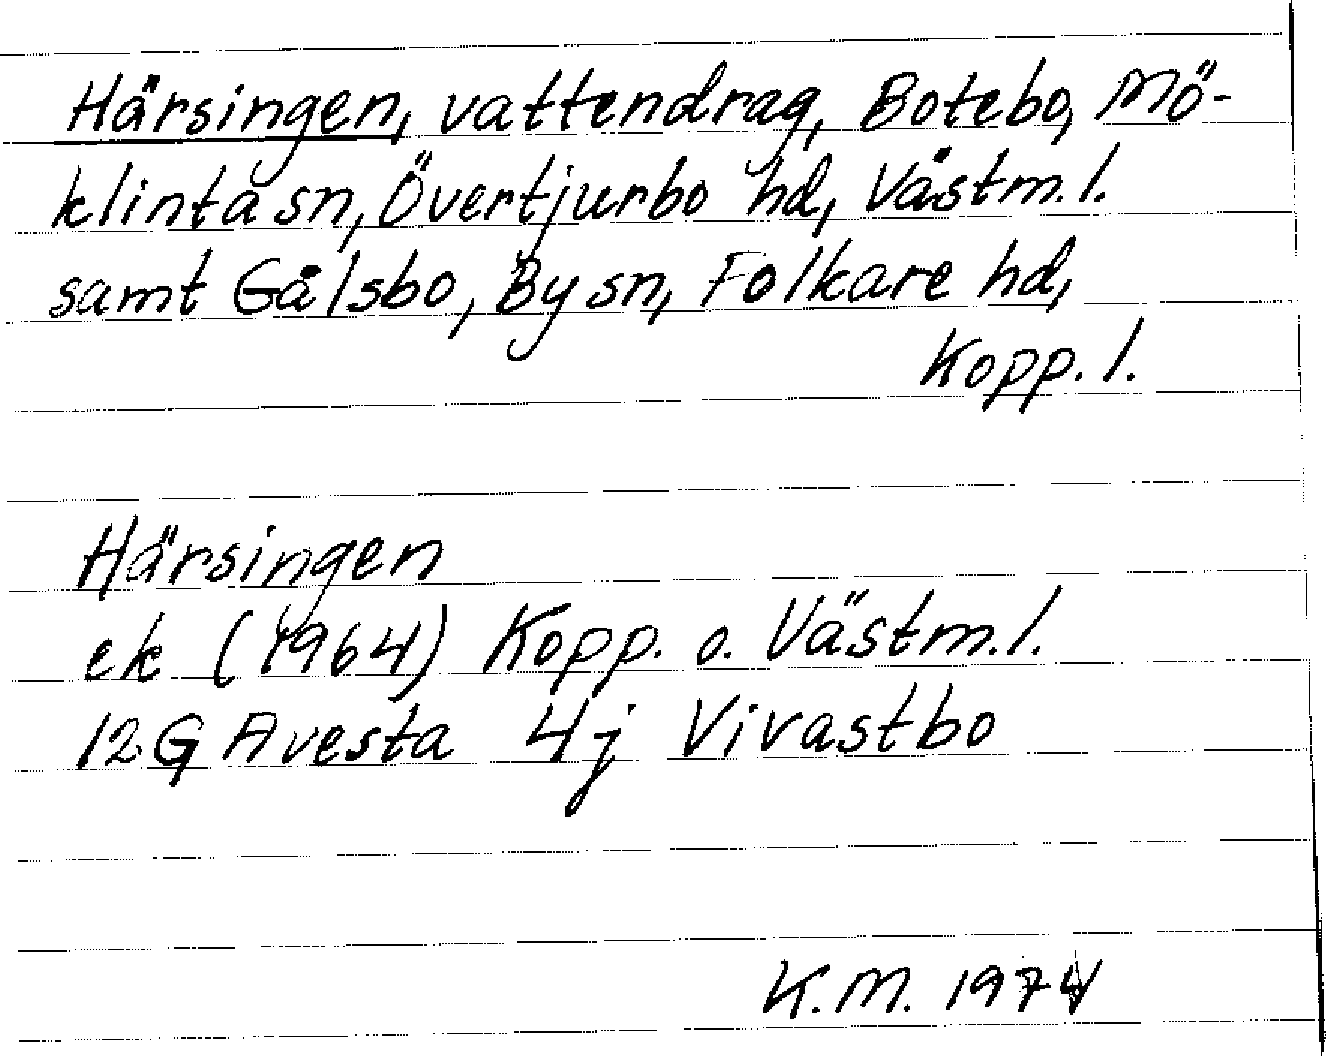 Härsingen, vattendrag, Botebo, Mö-
klinta sn, Övertjurbo hd, Västm. l.
samt Gålsbo, By sn, Folkare hd,
Kopp. l.
Härsingen
ek (1964) Kopp. o. Västm. l.
12G Avesta 4j Vivastbo
K.M. 1974